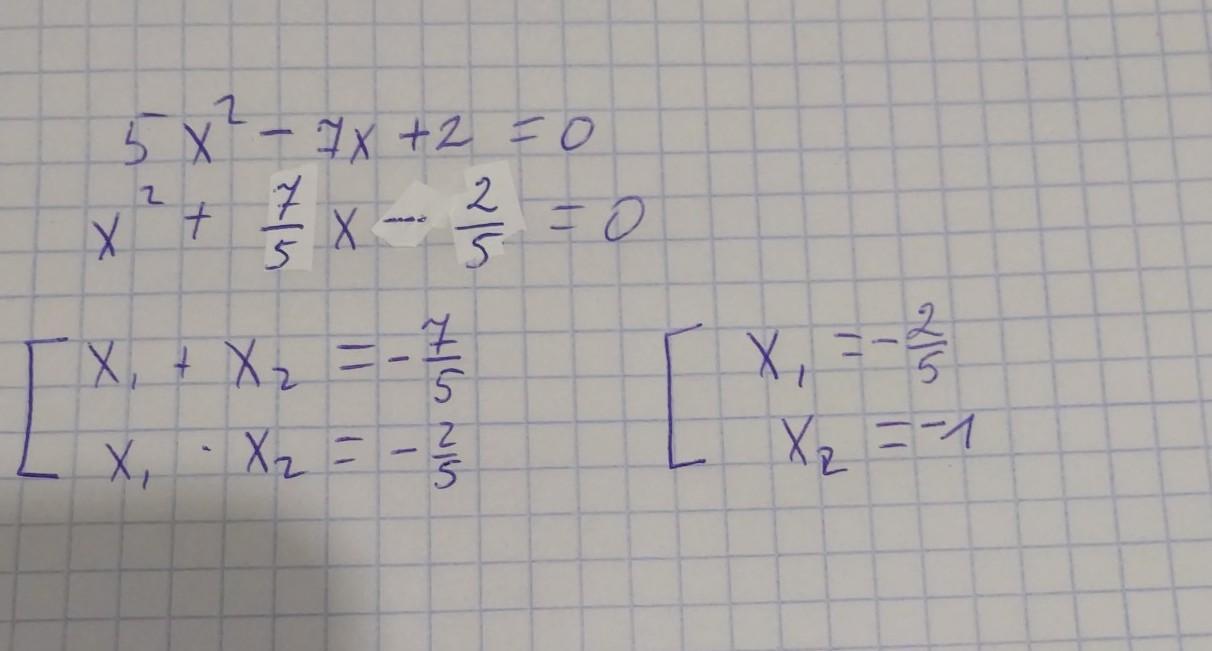 5x² - 7x + 2 = 0
x² + 7/5 x - 2/5 = 0
x₁ + x₂ = - 7/5
x₁ · x₂ = - 2/5
x₁ = - 2/5
x₂ = -1